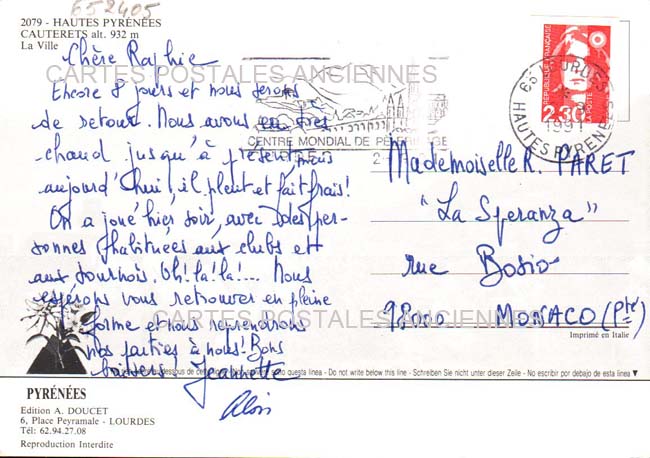 652405
2079 - HAUTES PYRÉNÉES
CAUTERETS alt. 932 m
La Ville
Chère
CARTES POSTALES ANCIENNES
Encore 8 jours et nous serons
de retour. Nous avons eu très
chaud jusqu'à présent, mais
aujourd'hui, il pleut et fait frais!
On a joué hier soir, avec des per-
sonnes habituées aux clubs et
aux tournois. Oh! la! la!... Nous
espérons vous retrouver en pleine
forme et nous reprendrons
nos parties à nous! Bons
baisers. Jeannette
CENTRE MONDIAL DE PÈLERINAGE
RÉPUBLIQUE FRANÇAISE
LA POSTE
2.30
65 LOURDES
1991
HAUTES PYRENEES
Mademoiselle R. PARET
"La Speranza"
rue Bosio
98000 MONACO (Pté)
CARTES POSTALES ANCIENNES
Imprimé en Italie
dessous de cette - Do not write below this line - Schreiben Sie nicht unter dieser Zeile - No escribir por debajo de esta linea
PYRÉNÉES
Edition A. DOUCET
6, Place Peyramale - LOURDES
Tél: 62.94.27.08
Reproduction Interdite